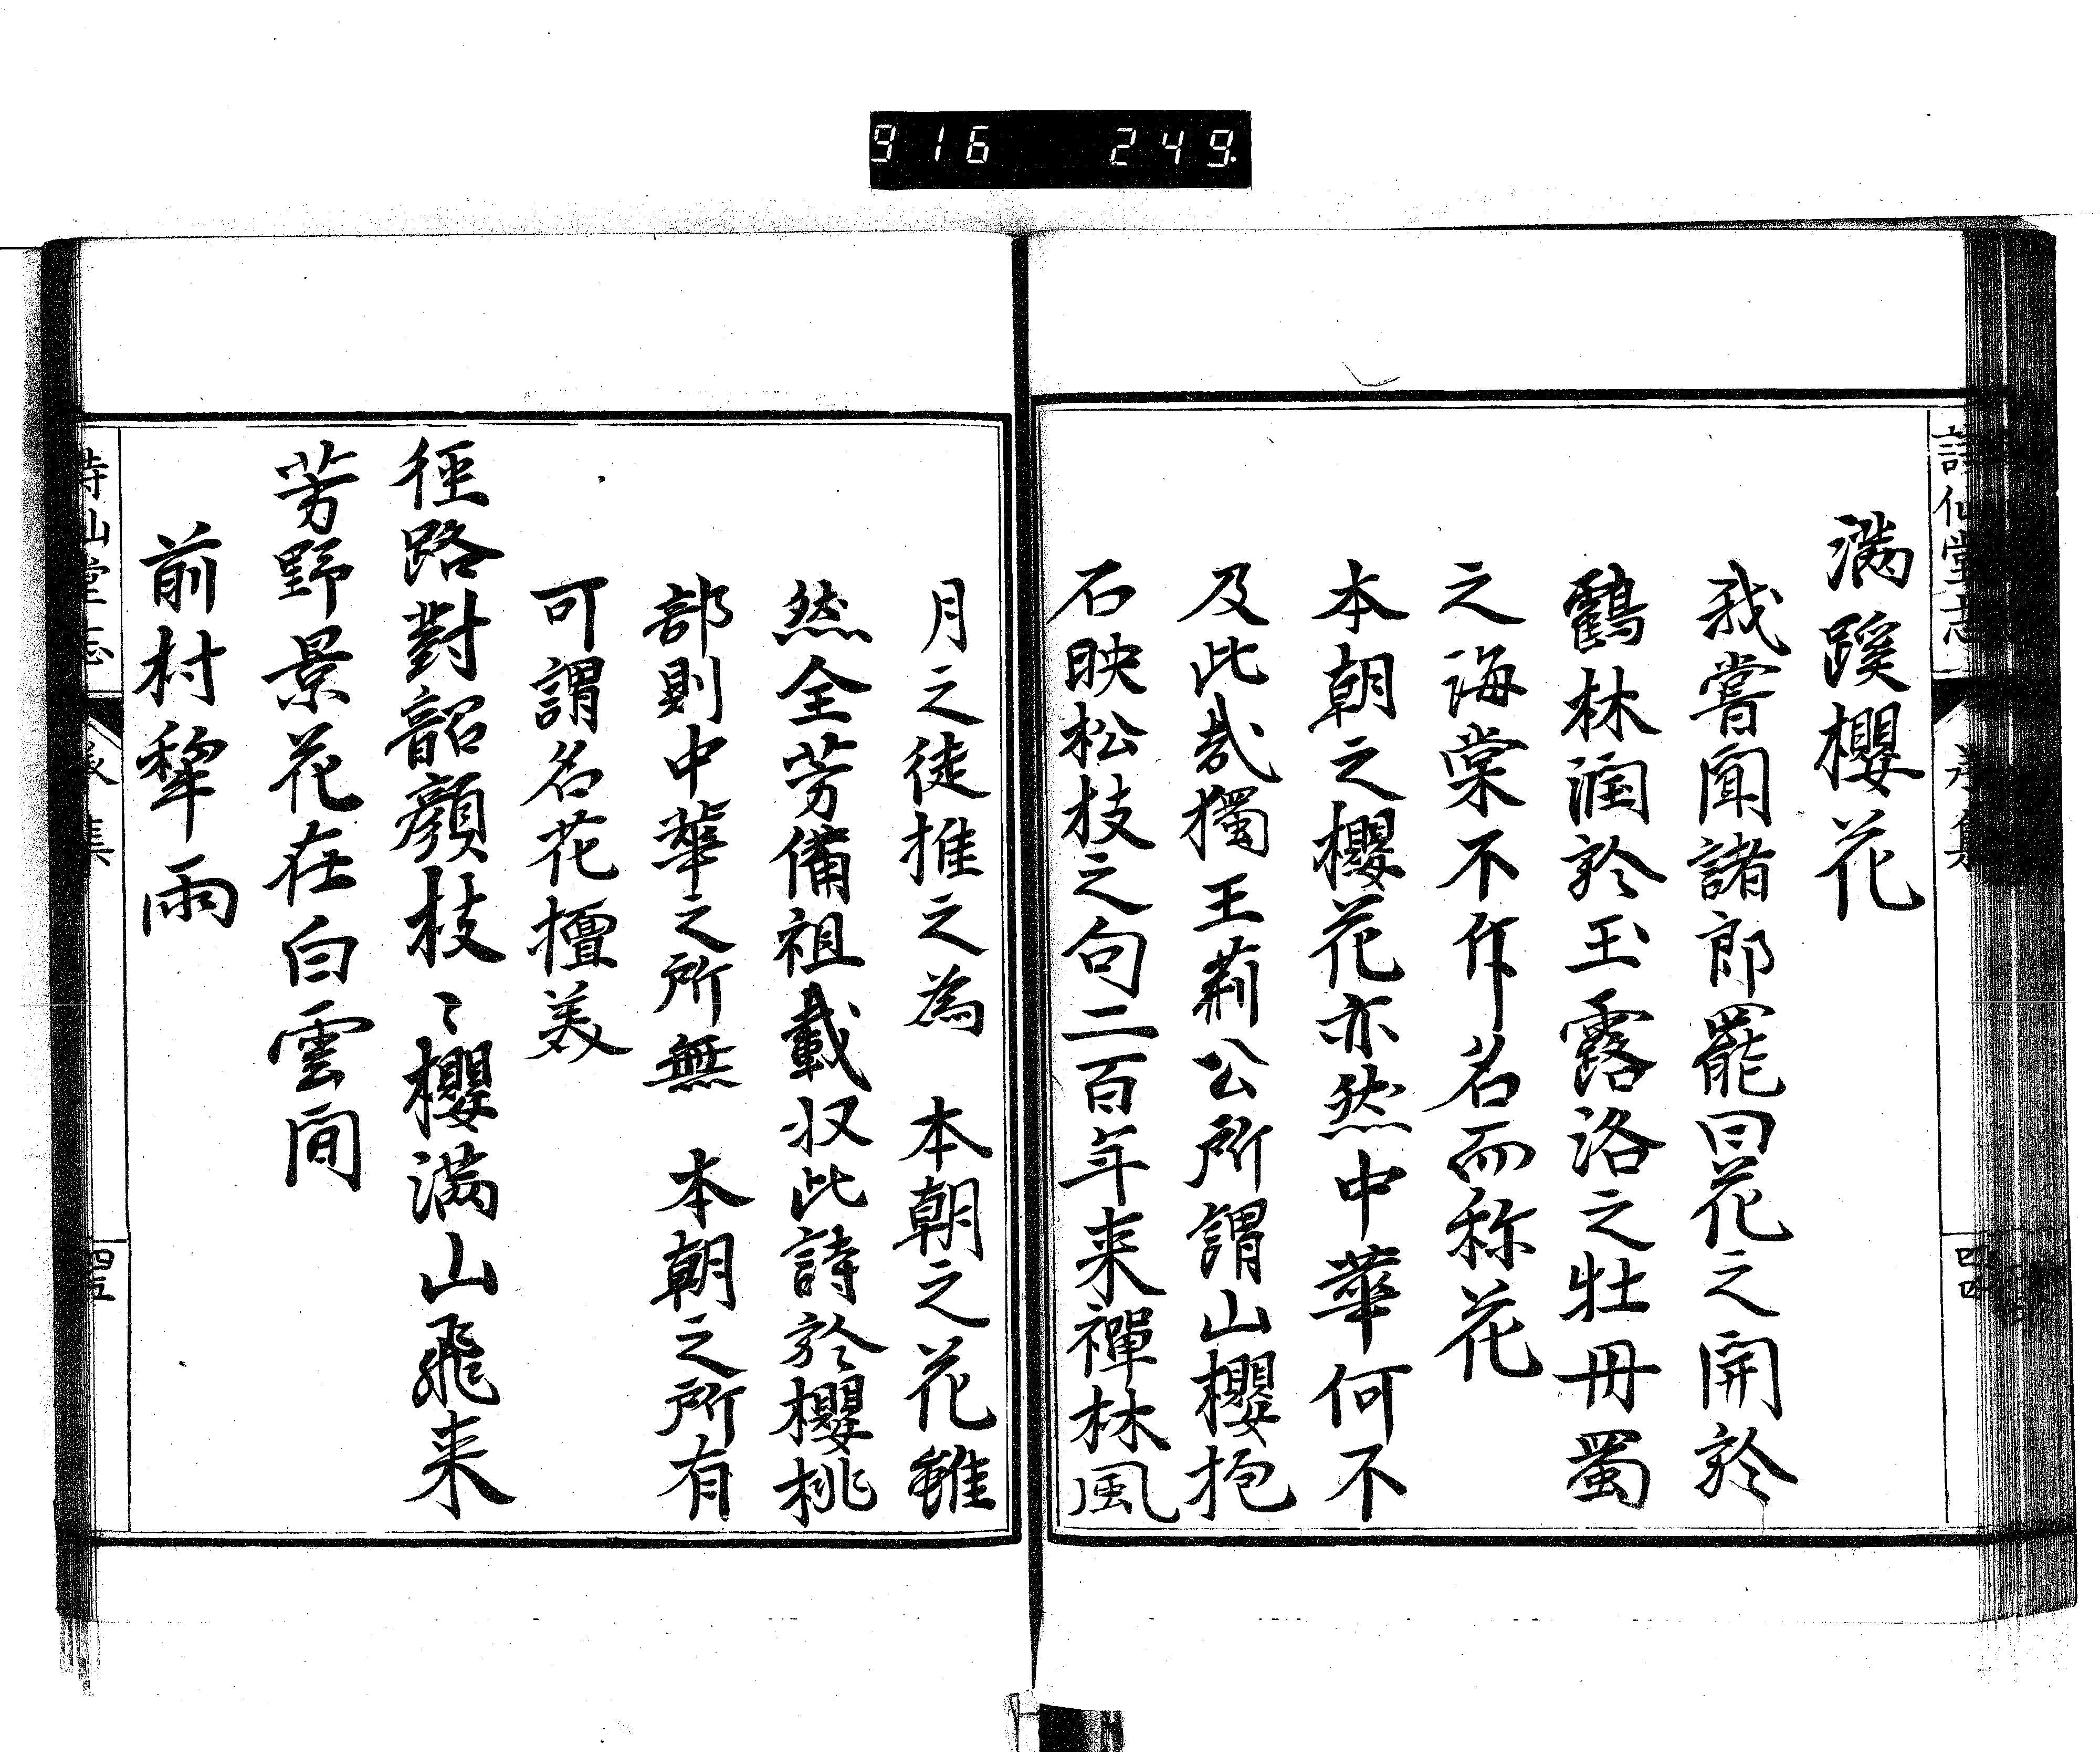 916 249.
詩仙堂志
四四
滿蹊櫻花
我嘗聞諸郎罷曰花之開於
鸖林潤於玉露洛之牡丹蜀
之海棠不作名而称花
本朝之櫻花亦然中華何不
及此哉獨王荊公所謂山櫻抱
石映松枝之句二百年来禪林風
月之徒推之為　本朝之花雖
然全芳備祖載収此詩於櫻桃
部則中華之所無　本朝之所有
可謂名花擅美
徑路對韶顏枝〻櫻滿山飛来
芳野景花在白雲間
前村犂雨
詩仙堂志
集
四五